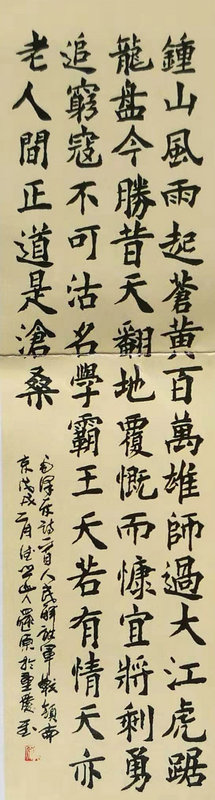 鍾山風雨起蒼黃百萬雄師過大江虎踞
龍盤今勝昔天翻地覆慨而慷宜將剩勇
追窮寇不可沽名學霸王天若有情天亦
老人間正道是滄桑
毛澤東詩一首人民解放軍領南
京戊戌二月於重慶